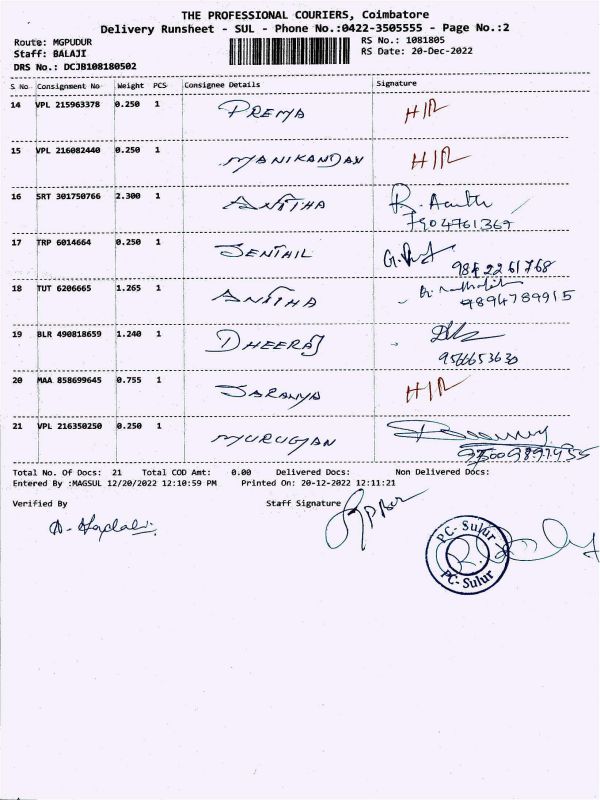 THE PROFESSIONAL COURIERS, Coimbatore
Delivery Runsheet - SUL - Phone No.:0422-3505555 - Page No.:2
Route: MGPUDUR
Staff: BALAJI
DRS No.: DCJB108180502
RS No.: 1081805
RS Date: 20-Dec-2022
S No Consignment No Weight PCS Consignee Details Signature
14 VPL 215963378 0.250 1 PREMA H/R
15 VPL 216082440 0.250 1 MANIKANDAN H/R
16 SRT 301750766 2.300 1 ANITHA
7904761369
17 TRP 6014664 0.250 1 SENTHIL
9842261768
18 TUT 6206665 1.265 1 ANITHA
9894789915
19 BLR 490818659 1.240 1 DHEERAJ
9566653630
20 MAA 858699645 0.755 1 SARANYA H/R
21 VPL 216350250 0.250 1 MURUGAN
Total No. Of Docs: 21 Total COD Amt: 0.00 Delivered Docs: Non Delivered Docs:
Entered By :MAGSUL 12/20/2022 12:10:59 PM Printed On: 20-12-2022 12:11:21
Verified By Staff Signature
PC- Sulur
PC- Sulur